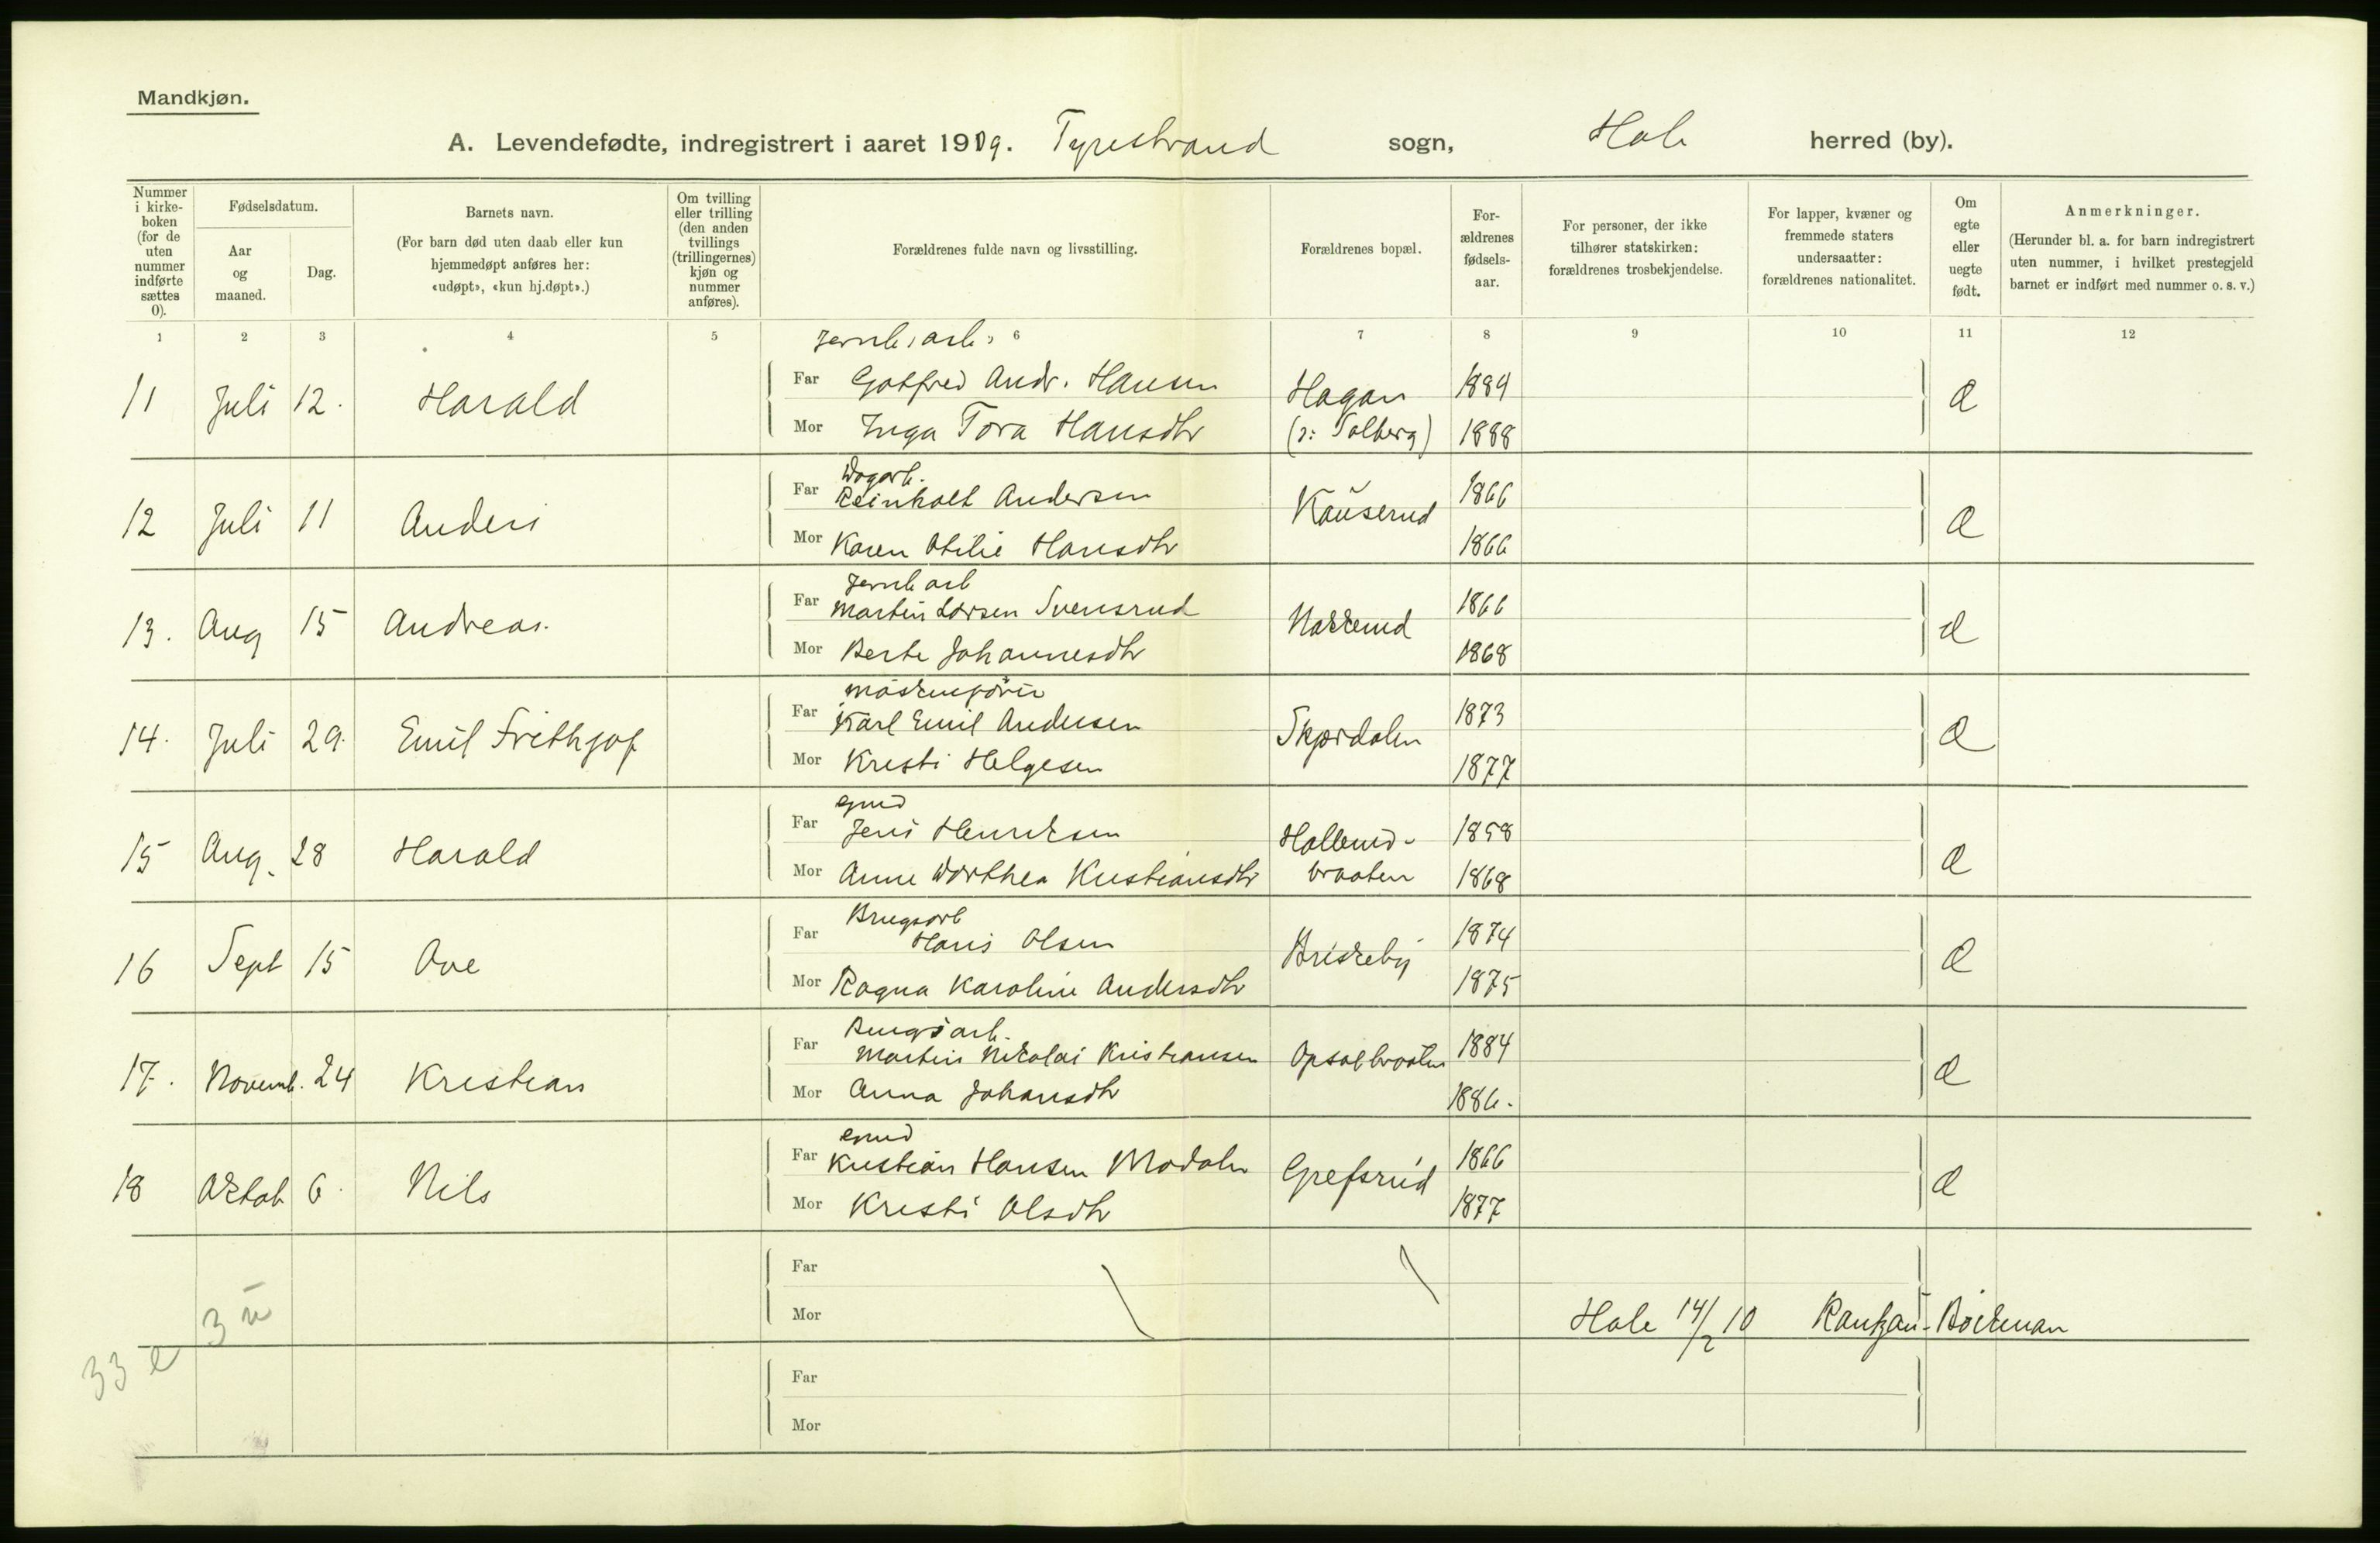 Mandkjøn.
A. Levendefødte, indregistrert i aaret 1909. Tyrestrand sogn, Hole herred (by).
Nummer i kirkeboken (for de uten nummer indførte sættes 0).
Fødselsdatum.
Aar og maaned.
Dag.
Barnets navn.
(For barn død uten daab eller kun hjemmedøpt anføres her: «udøpt», «kun hj.døpt».)
Om tvilling eller trilling (den anden tvillings (trillingernes) kjøn og nummer anføres).
Forældrenes fulde navn og livsstilling.
Forældrenes bopæl.
Forældrenes fødselsaar.
For personer, der ikke tilhører statskirken: forældrenes trosbekjendelse.
For lapper, kvæner og fremmede staters undersaatter: forældrenes nationalitet.
Om egte eller uegte født.
Anmerkninger.
(Herunder bl. a. for barn indregistrert uten nummer, i hvilket prestegjeld barnet er indført med nummer o. s. v.)
1 2 3 4 5 6 7 8 9 10 11 12
Jernb. arb.
11 Juli 12. Harald Far Gotfred Andr. Hansen Hagan 1884 e
Mor Inga Tora Hansdtr (ɔ: Solberg) 1888
Dagarb.
12 Juli 11 Anders Far Reinholt Andersen Kauserud 1866 e
Mor Karen Otilie Hansdtr 1866
Jernb arb
13. Aug 15 Andreas. Far Martin Larsen Svensrud Nakkerud 1866 e
Mor Berte Johannesdtr 1868
Maskinfører
14. Juli 29. Emil Frithjof Far Karl Emil Andersen Skjærdalen 1873 e
Mor Kristi Helgesen 1877
Gmd
15 Aug. 28 Harald Far Jens Henriksen Hollerud- 1858 e
Mor Anne Dorthea Kristiansdtr braaten 1868
Brugsarb
16 Sept 15 Ove Far Hans Olsen Briskeby 1874 e
Mor Ragna Karoline Andersdtr 1875
Brugsarb.
17. Novemb. 24 Kristian Far Martin Nikolai Kristiansen Opsalbraaten 1884 e
Mor Anna Johansdtr 1886.
Gmd
18 Oktob 6. Nils Far Kristian Hansen Modalen Grefsrud 1866 e
Mor Kristi Olsdtr 1877
Far
Mor Hole 14/2 10 Rantzau-Bøckman
3 u
33 e
Far
Mor